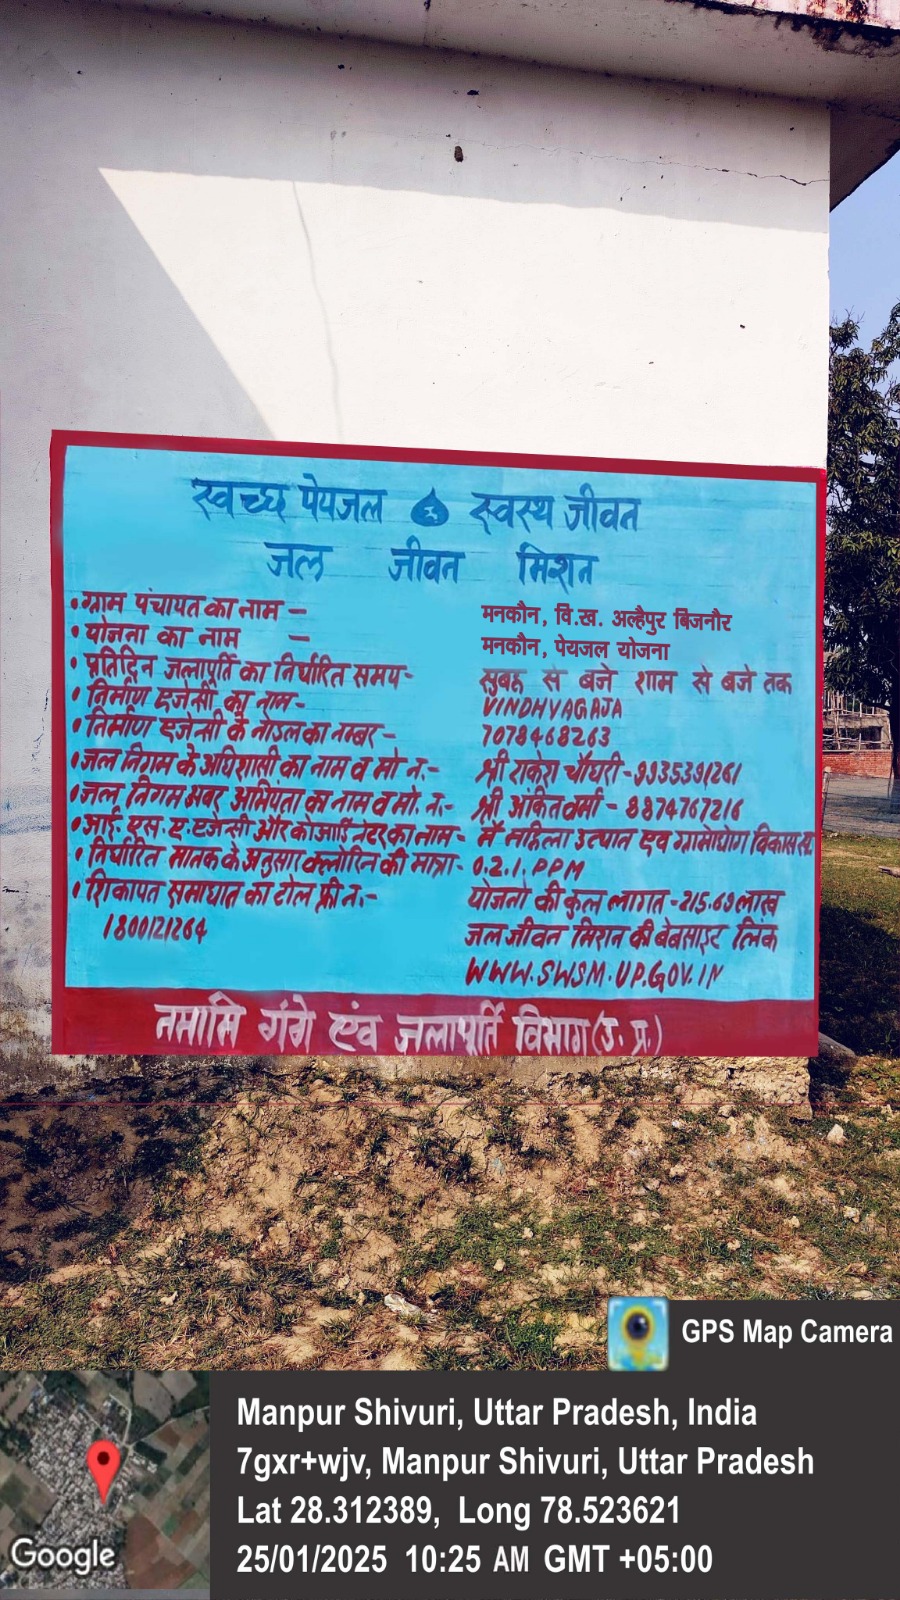 स्वच्छ पेयजल स्वस्थ जीवन
जल जीवन मिशन
• ग्राम पंचायत का नाम – मनकौन, वि.ख. अल्हैपुर बिजनौर
• योजना का नाम – मनकौन, पेयजल योजना
• प्रतिदिन जलापूर्ति का निर्धारित समय- सुबह से बजे शाम से बजे तक
• निर्माण एजेन्सी का नाम- VINDHYAGAJA
• निर्माण एजेन्सी के नोडल का नम्बर- 7078468263
• जल निगम के अधिशासी का नाम व मो न.- श्री राकेश चौधरी-9935391261
• जल निगम अवर अभियंता का नाम व मो. न.- श्री अंकित वर्मा - 8874767216
• आई. एस. ए. एजेन्सी और कोआर्डिनेटर का नाम- मै महिला उत्थान एव ग्रामोद्योग विकास
• निर्धारित मानक के अनुसार क्लोरिन की मात्रा- 0.2.1.PPM
• शिकायत समाधान का टोल फ्री न.- योजना की कुल लागत -215.69 लाख
1800121264 जल जीवन मिशन की बेबसाइट लिंक
WWW.SWSM.UP.GOV.IN
नमामि गंगे एंव जलापूर्ति विभाग (उ. प्र.)
GPS Map Camera
Manpur Shivuri, Uttar Pradesh, India
7gxr+wjv, Manpur Shivuri, Uttar Pradesh
Lat 28.312389, Long 78.523621
25/01/2025 10:25 AM GMT +05:00
Google